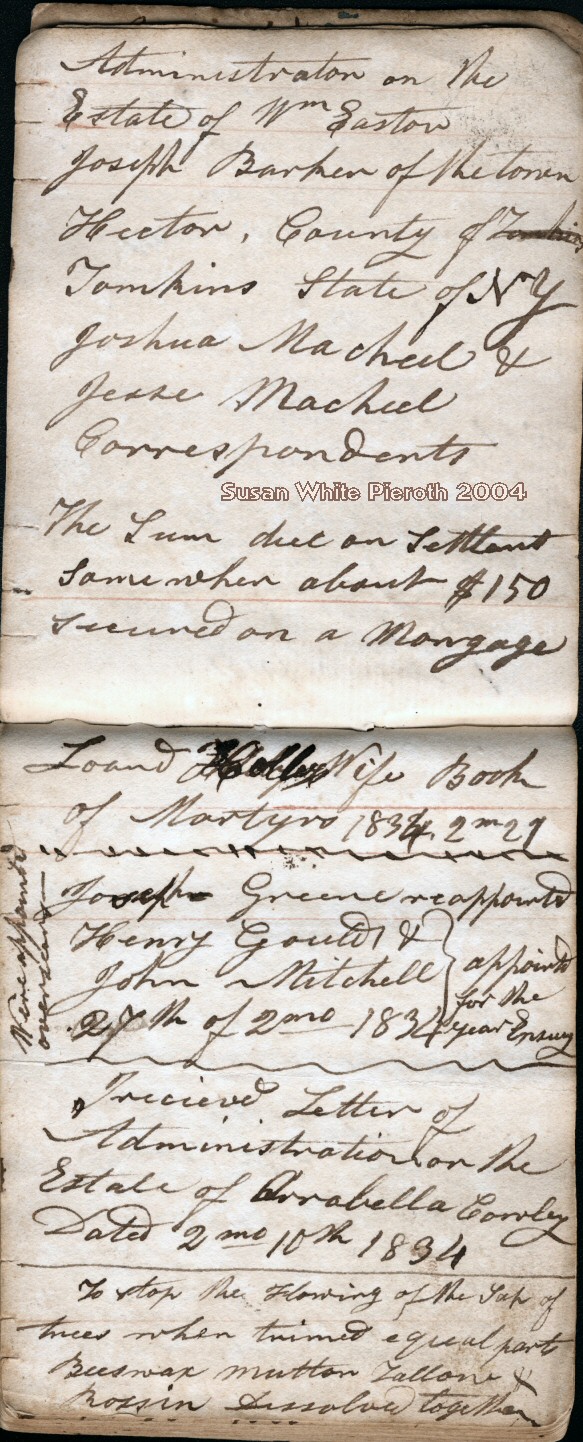 Administrator on the
Estate of Wm Easton
Joseph Barker of the town
Hector, County of
Tomkins State of NY
Joshua Macheel &
Jesse Macheel
Correspondents
Susan White Pieroth 2004
The Sum due on Settlant
Somewher about $150
Secured on a Morgage
Loand Wife Book
of Martyrs 1834 2m 29
Joseph Greene reappointed
Henry Gould &
John Mitchell
27th of 2mo 1834
appointd
for the
year Ensuing
Were appointed
overseers
I recieved Letter of
Administration on the
Estate of Arrabella Corley
Dated 2mo 10th 1834
To stop the Flowing of the Sap of
trees when trimed equal part
Beeswax mutton Tallone &
Rossin Dessolved together